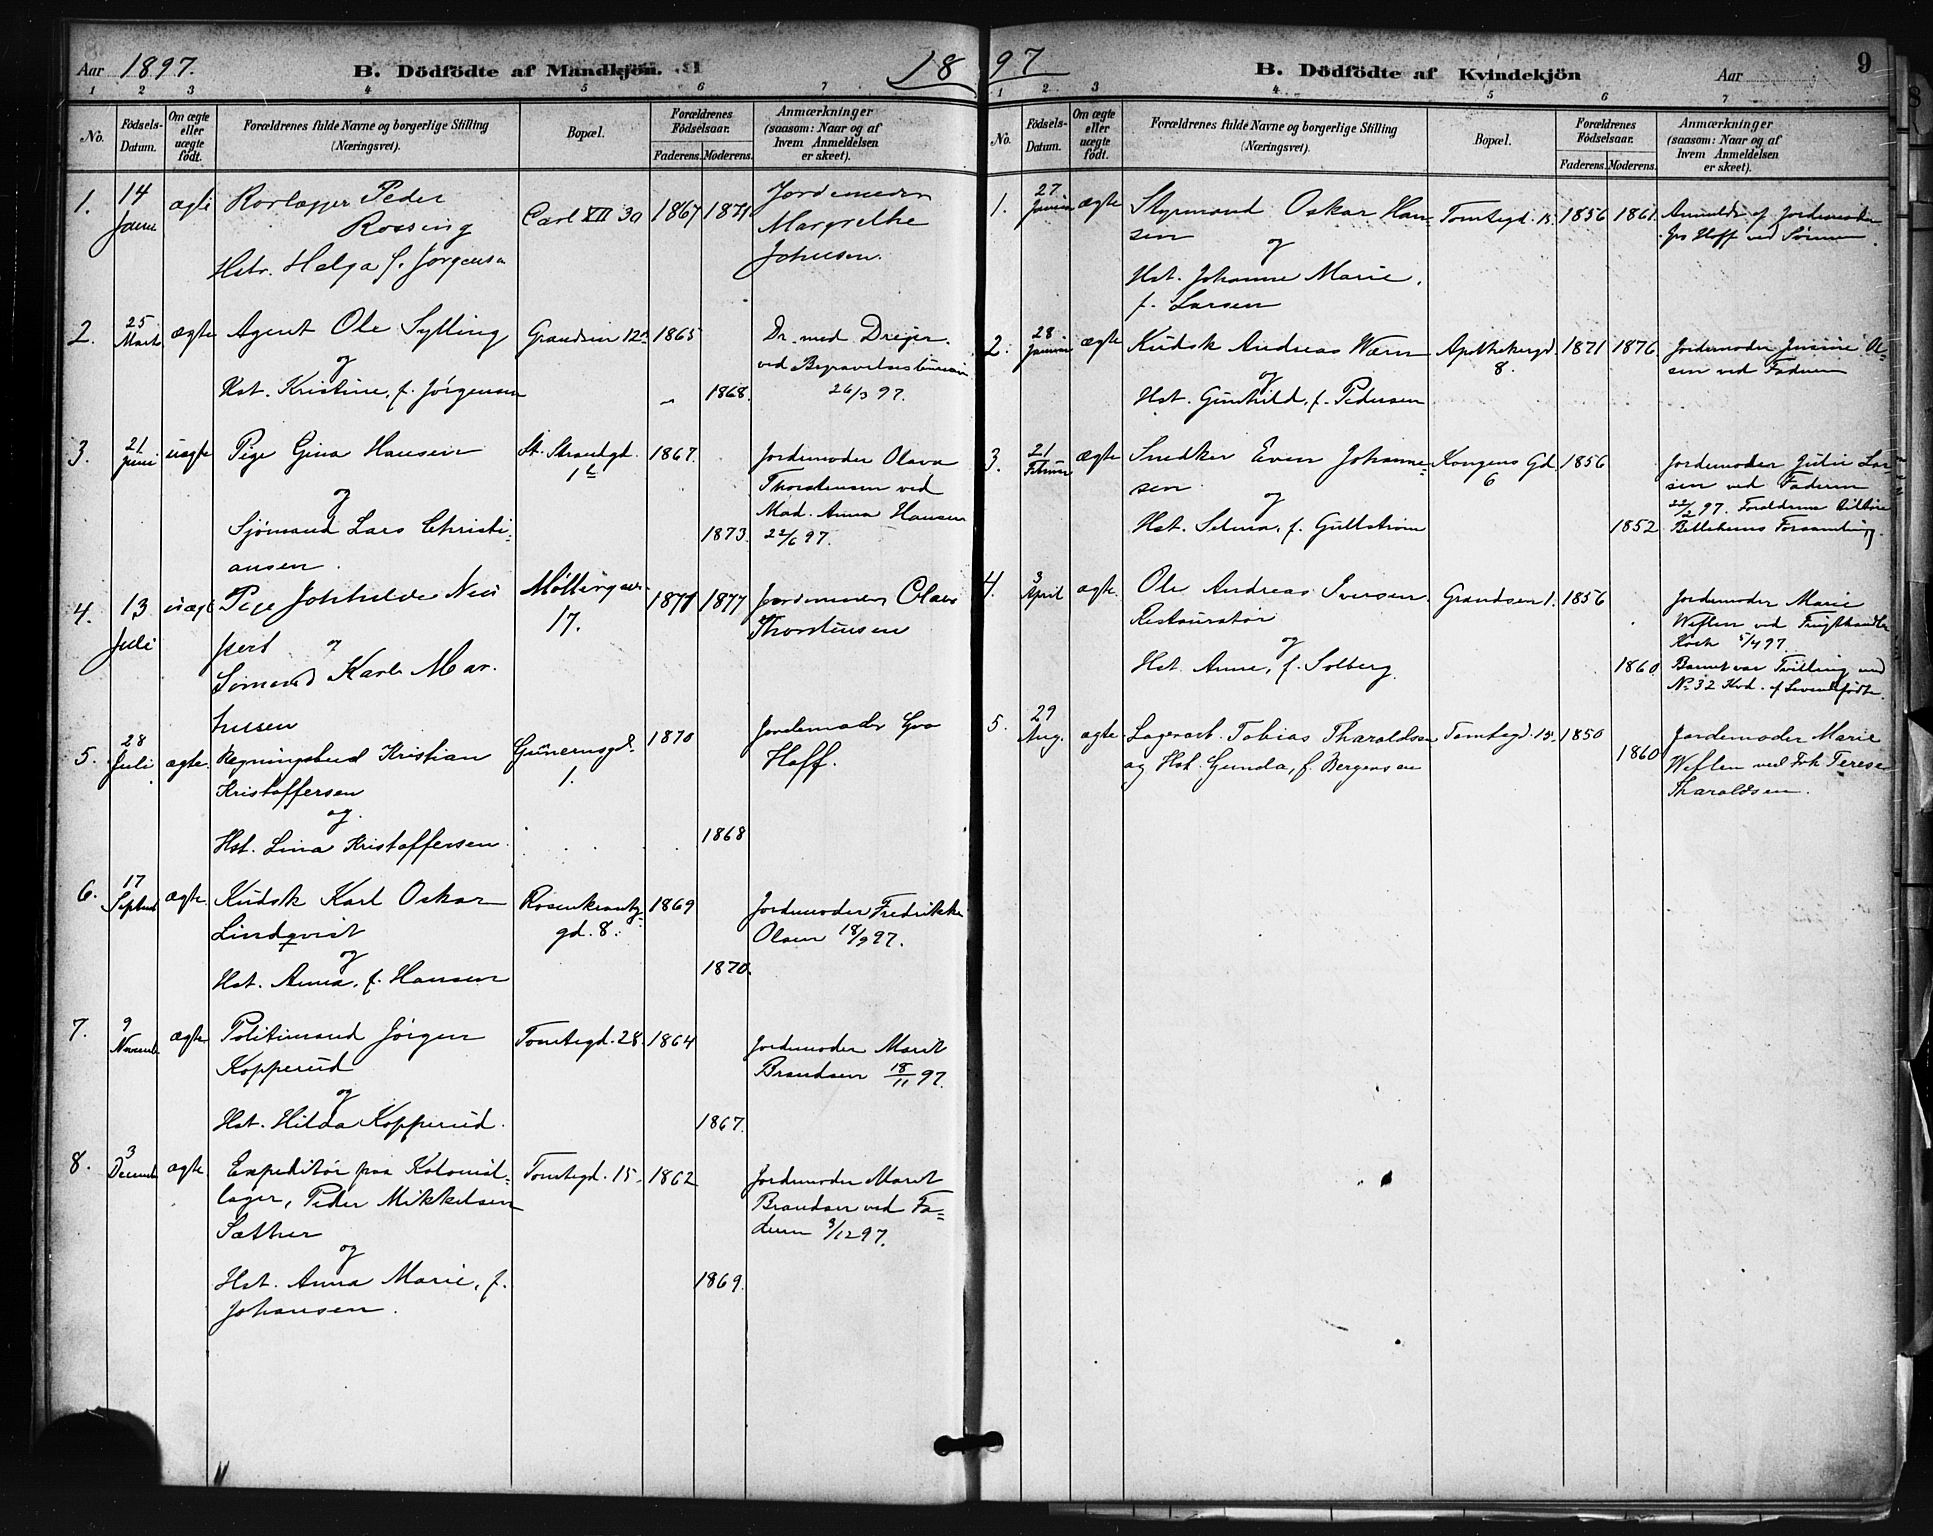 Aar 1897. B. Dödfödte af Mandkjön. 18
1 2 3 4 5 6 7
No. Födsels-Datum. Om ægte eller uægte födt. Forældrenes fulde Navne og borgerlige Stilling (Næringsvei). Bopæl. Forældrenes Födselsaar. Faderens. Moderens. Anmærkninger (saasom: Naar og af hvem Anmeldelsen er skeet).
1. 14 ægte Rørlægger Peder Carl XII 30 1867 Jordemoder
Rossing Margrethe
Hstr. Helga f. Jørgensen Johnsen.
2. 25 Mart ægte Agent Ole Sylling 1865 Dr. med Dreijer
og ved Begravelsesbureau
Hst. Kristine, f. Jørgensen 1868. 26/3 97.
3. 21 Juni uægte Pige Gina Hansen St. Strandgd. 1867. Jordemoder Olava
og Thorstensen ved
Sjømand Lars Christi- Mad. Anna Hansen
ansen. 1873. 22/6 97.
4. 13 Juli uægte Pige 17. 1877 Jordemoder Olava
og Thorstensen
Sømand Karl Mar-
5. 28 Juli ægte. Regningsbud Kristian Gunerusgd. 1. 1870 Jordemoder Gro
Kristoffersen Hoff.
og
Hst. Lina Kristoffersen. 1868
6. 17 Septemb ægte. Kudsk Karl Oskar Rosenkrantz- 1869 Jordemoder Fredrikke
Lindqvist gd. 8. Olsen 18/9 97.
og
Hst. Anna, f. Hansen 1870.
7. 9 Novemb ægte Politimand Jørgen Tomtegd. 28. 1864 Jordemoder Marit
Kopperud Brandsen 18/11 97.
og
Hst. Hilda Kopperud. 1867.
8. 3 Decemb ægte Expeditør paa Kolonial- Tomtegd. 15. 1862 Jordemoder Marit
lager, Peder Mikkelsen Brandsen ved Fa-
Sæther deren 3/12 97.
og
Hst. Anna Marie, f. 1869.
Johansen.
97 B. Dödfödte af Kvindekjön Aar 9
1 2 3 4 5 6 7
No. Födsels-Datum. Om ægte eller uægte födt. Forældrenes fulde Navne og borgerlige Stilling (Næringsvei). Bopæl. Forældrenes Födselsaar. Faderens. Moderens. Anmærkninger (saasom: Naar og af hvem Anmeldelsen er skeet).
1. 27 Januar ægte Styrmand Oskar Han- Tomtegd. 1856 1861. Anmeldt af Jordemoder
sen Hoff ved
og
Hst. Johanne Marie,
f. Larsen
2. 28 Januar ægte Kudsk Andreas Wærn Apothekergd. 8. 1871 1876. Jordemoder Jensine Ol-
og sen ved Faderen
Hst. Gunhild, f. Pedersen
3. 21 Februar ægte Snedker Even Johanne- Kongens Gd. 6 1856 Jordemoder Julie Lar-
sen sen ved Faderen
og 22/2 97. Forældrene tilhøre
Hst. Selma, f. Gullstrøm 1852. Betlehems Forsamling.
4. 3 April ægte. Ole Andreas Iversen Grændsen 1. 1856 Jordemoder Marie
Restauratør Weflen ved
og 5/4 97.
Hst. Anne, f. Solberg. 1860. Barnet var Tvilling med
No 32 Kvd. af Levendefødte.
5. 29 Aug. ægte Lagerarb. Tobias Tharaldsen Tomtegd. 1850 Jordemoder Marie
og Hst. Gunda, f. Bergersen 1860 Weflen ved Frk Terese
Tharaldsen.